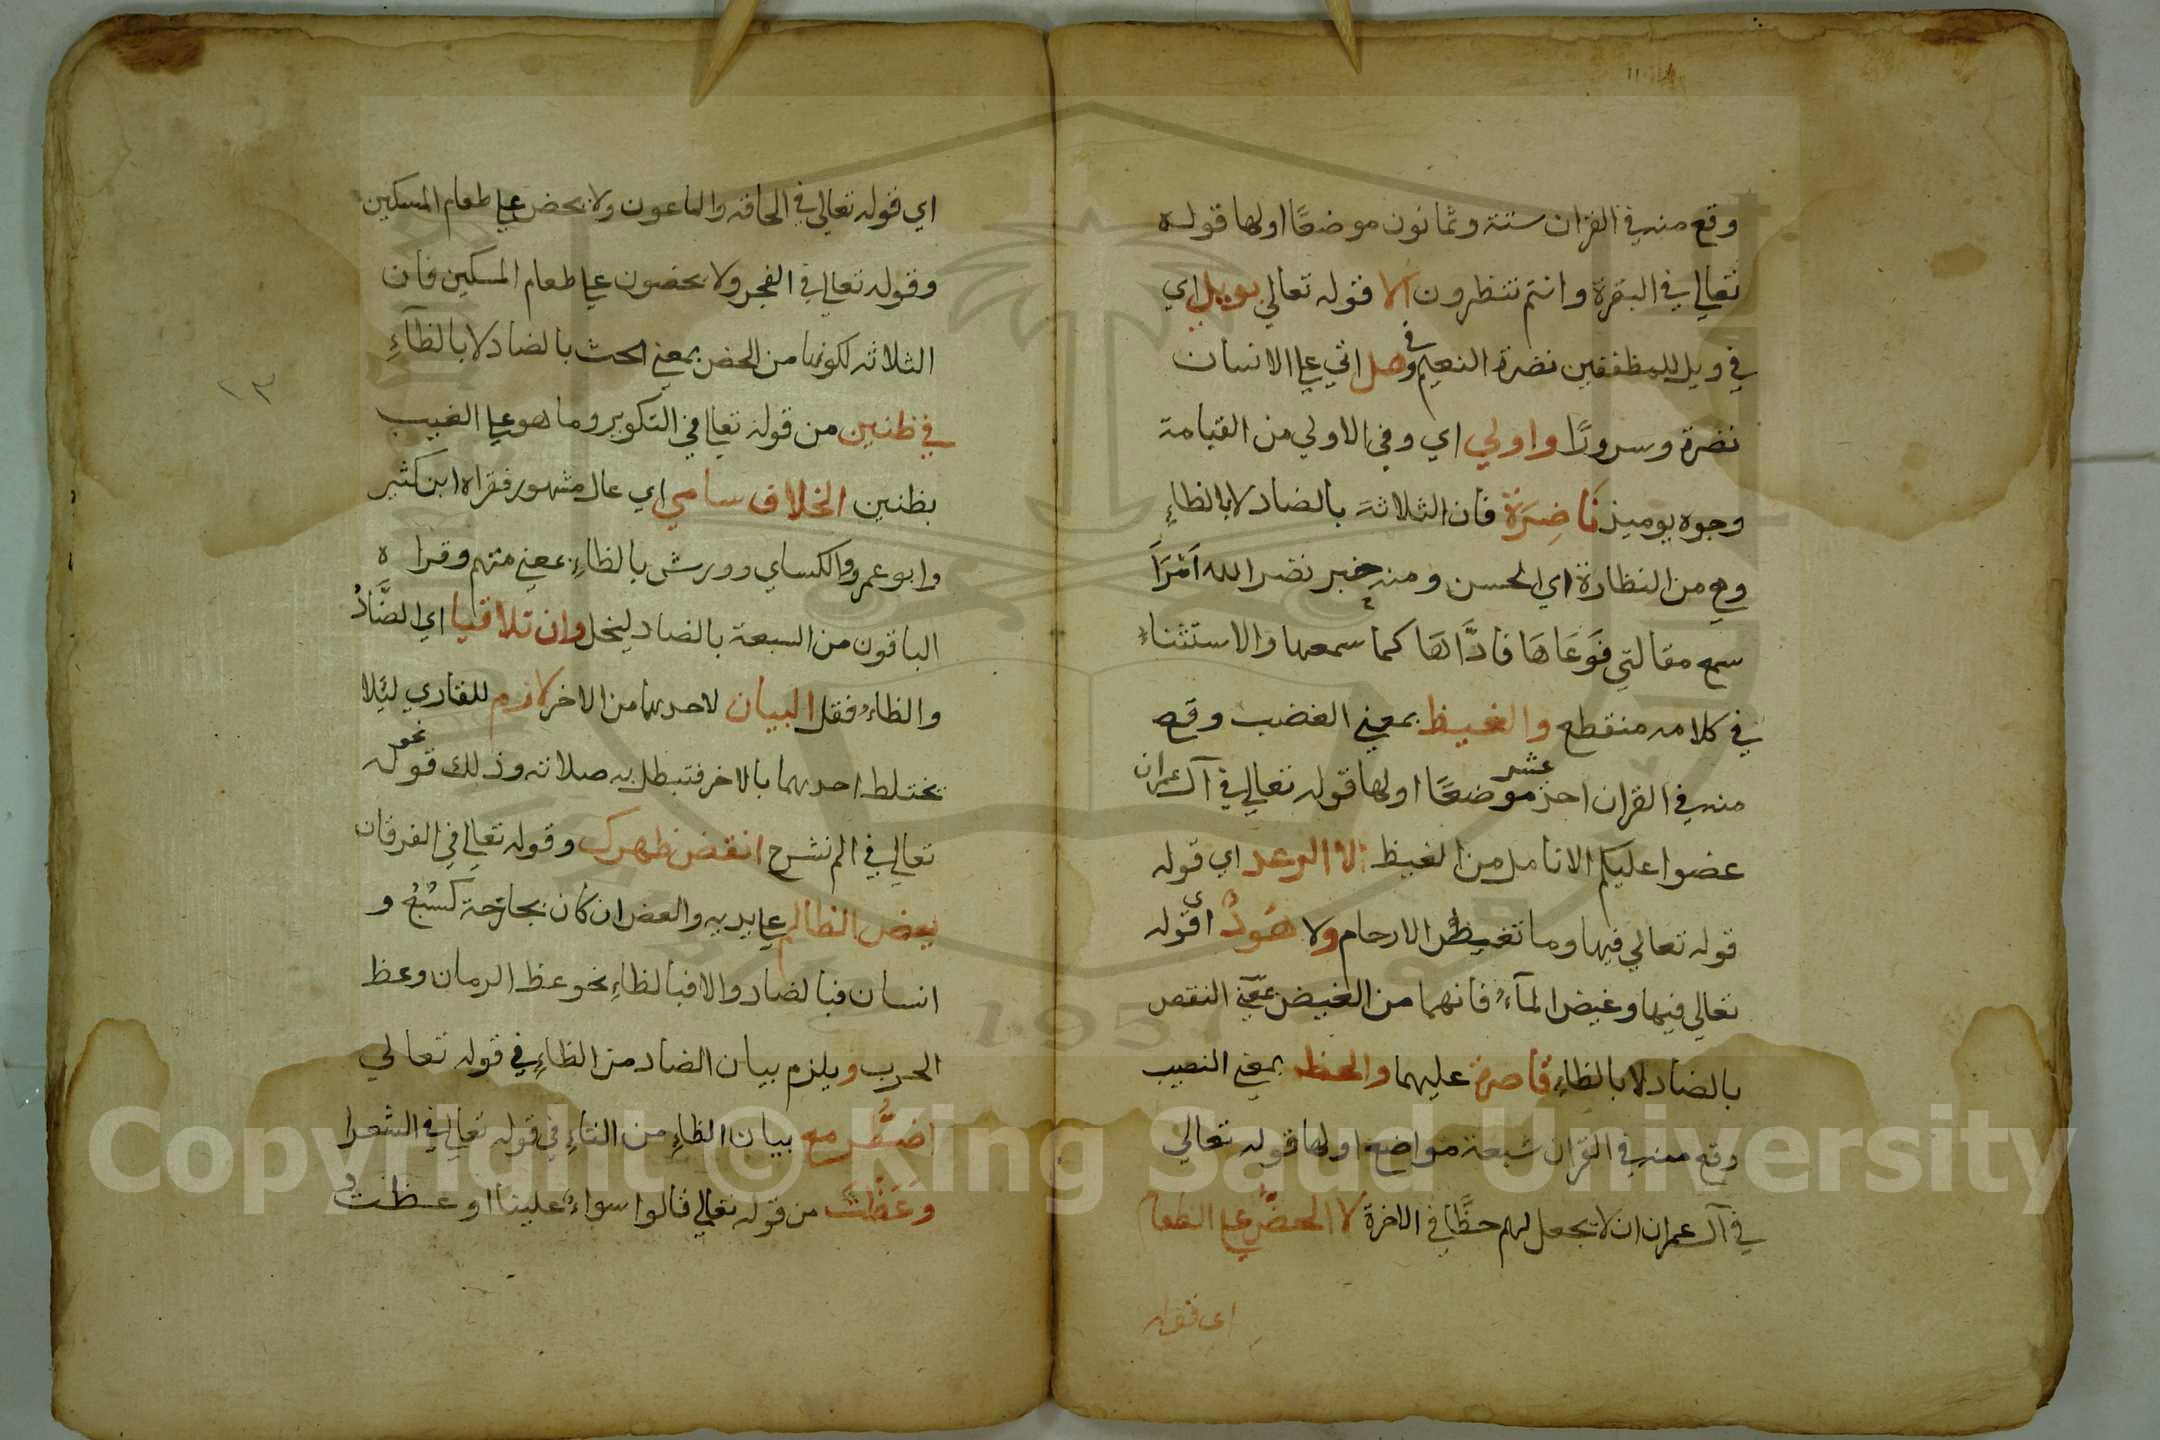 وقع منه في القران ستة وثمانون موضعًا اولها قوله
تعالي في البقرة وانتم تنظرون الا قوله تعالي بويل اي
في ويل للمطففين نضرة النعيم وفي هل اتي علي الانسان
نضرة وسرورًا واولي اي وفي الاولي من القيامة
وجوه يوميذ نَاضِرَة فان الثلاثة بالضاد لا بالظاءِ
وهي من النظارة اي الحسن ومنه خبر نضر الله امْرَاً
سمع مقالتي فَوَعَاهَا فادَّاهَا كما سمعها والاستثناء
في كلامه منقطع والغيظ بمعني الغضب وقع
منه في القران احد عشر موضعًا اولها قوله تعالي في آل عمران
عضوا عليكم الانامل من الغيظ الا الرعد اي قوله
قوله تعالي فيها وما تغيظ الارحام ولا هُودٌ اي قوله
تعالي فيها وغيض المآءُ فانهما من الغيض بمعني النقص
بالضاد لا بالظاءِ قاصرة عليهما والحظ بمعني النصيب
وقع منه في القران سبعة مواضع اولها قوله تعالي
في آل عمران ان لا يجعل لهم حظًّا في الاخرة لا الحضُّ علي الطعام
اي قوله
١٣
اي قوله تعالي في الحاقه والماعون ولا يحض علي طعام المسكين
وقوله تعالي في الفجر ولا يحضون علي طعام المسكين فان
الثلاثه لكونها من الحض بمعني الحث بالضاد لا بالظآءِ
في ظنين من قوله تعالي في التكوير وما هو علي الغيب
بظنين الخلاف سامي اي عال مشهور فقراه ابن كثير
وابو عمرو والكساي وورش بالظاءِ بمعني متهم وقراه
الباقون من السبعة بالضاد ليخل وان تلاقيا اي الضَّادُ
والظاءُ فقل البيان لاحدهما من الاخر لازم للقاري ليَلا
يختلط احدهما بالاخر فتبطل به صلاته وذلك نحو قوله
تعالي في الم نشرح انقض ظهرك وقوله تعالي في الفرقان
يعض الظالم علي يديه والعض ان كان بجارحة كسَبُعٍ و
انسان فبالضاد والا فبالظاءِ نحو عظ الزمان وعظ
الحرب ويلزم بيان الضاد من الظاءِ في قوله تعالي
اضطُّر مع بيان الظاءِ من التاءِ في قوله تعالي في الشعرا
وَعَظْتَ من قوله تعالي قالوا سواءٌ علينا اوعظت
Copyright © King Saud University
1957